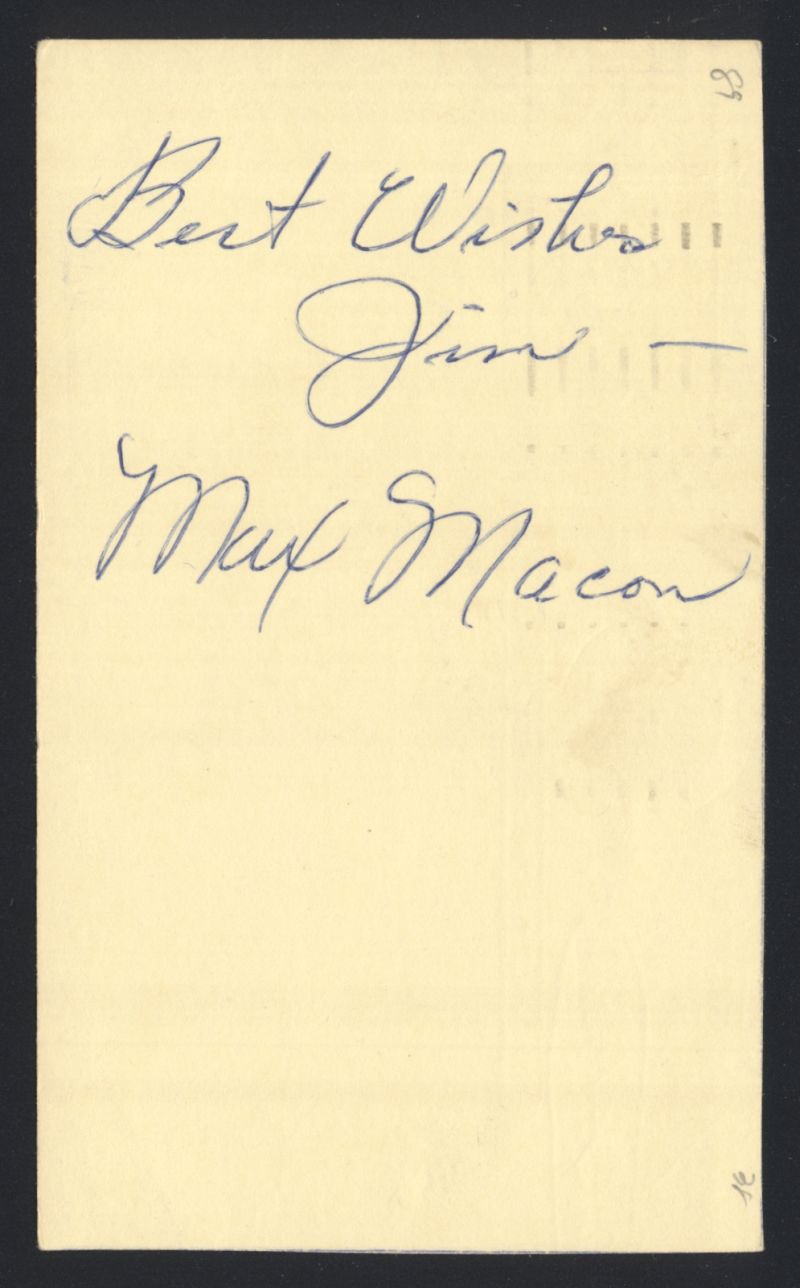 Best Wishes
Jim —
Max Macon